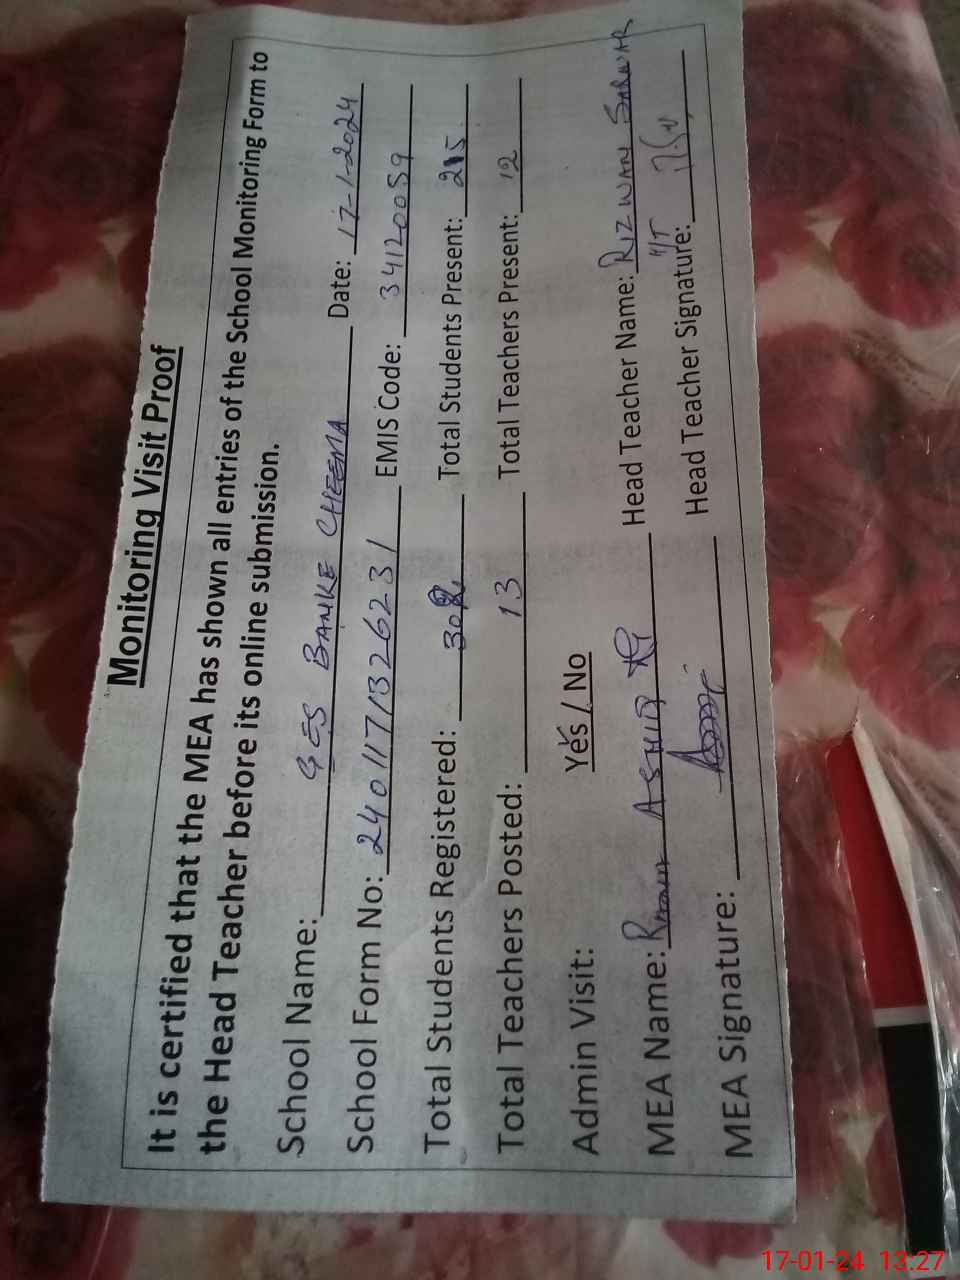 Monitoring Visit Proof
It is certified that the MEA has shown all entries of the School Monitoring Form to
the Head Teacher before its online submission.
School Name: GES BANKE CHEEMA Date: 17-1-2024
School Form No: 240117132623 1 EMIS Code: 34120059
Total Students Registered: 302 Total Students Present: 215
Total Teachers Posted: 13 Total Teachers Present: 12
Admin Visit: Yes / No
MEA Name: ASHIQ Head Teacher Name: RIZWAN SARWAR
MEA Signature: Head Teacher Signature:
17-01-24 13:27